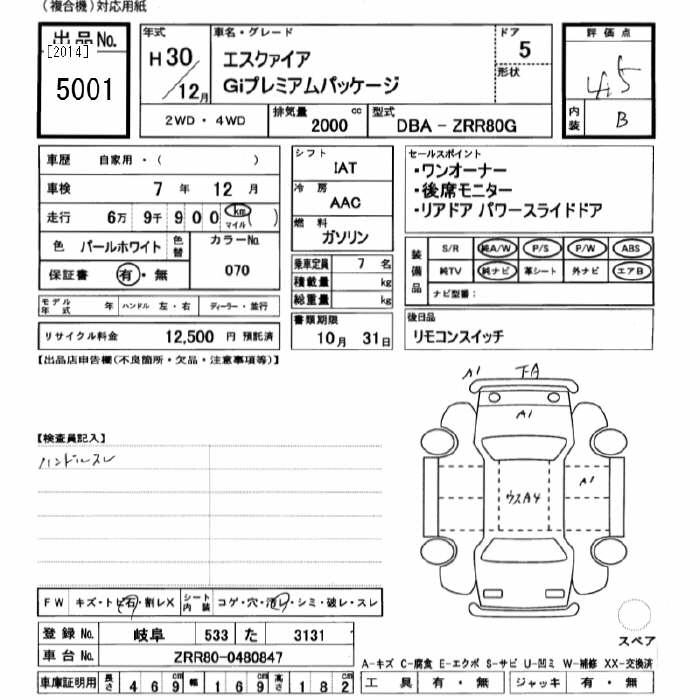 (複合機)対応用紙
出品No.
[2014]
5001
年式
H30/12月
車名・グレード
エスクァイア
Giプレミアムパッケージ
ドア
5
形状
2WD・4WD
排気量 2000 cc
型式 DBA - ZRR80G
評価点
4.5
内装 B
車歴 自家用・( )
車検 7 年 12 月
走行 6万 9千 900 km マイル ( )
色 パールホワイト 色替
カラーNo. 070
保証書 有・無
モデル年式 年 ハンドル 左・右 ディーラー・並行
リサイクル料金 12,500 円 預託済
シフト
IAT
冷房
AAC
燃料
ガソリン
乗車定員 7 名
積載量 kg
総重量 kg
書類期限
10月 31日
セールスポイント
・ワンオーナー
・後席モニター
・リアドア パワースライドドア
装備品
S/R 純A/W P/S P/W ABS
純TV 純ナビ 革シート 外ナビ エアB
ナビ型番:
後日品
リモコンスイッチ
【出品店申告欄(不良箇所・欠品・注意事項等)】
A1 下A
A1
A1
ウスA4
【検査員記入】
ハンドルスレ
FW キズ・トビ石・割レX シート内装 コゲ・穴・汚レ・シミ・破レ・スレ
登録No. 岐阜 533 た 3131
車台No. ZRR80-0480847
車庫証明用 長さ 469cm 幅 169cm 高さ 182cm
スペア
A-キズ C-腐食 E-エクボ S-サビ U-凹ミ W-補修 XX-交換済
工具 有・無 ジャッキ 有・無